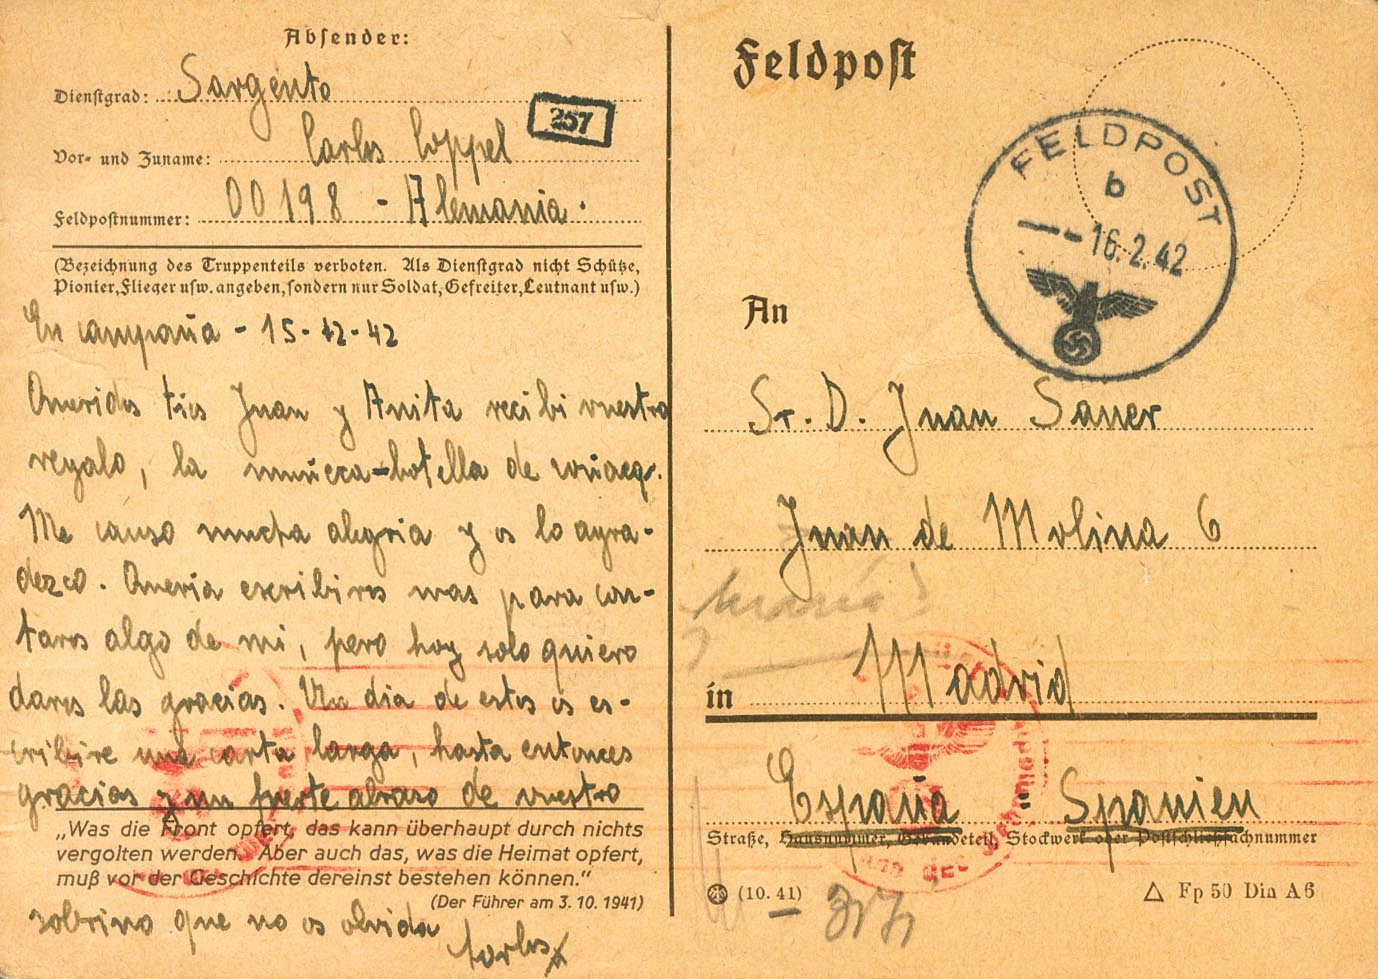 Absender:
Dienstgrad: Sargento
257
Vor- und Zuname: Carlos Coppel
Feldpostnummer: 00198 - Alemania.
(Bezeichnung des Truppenteils verboten. Als Dienstgrad nicht Schütze,
Pionier, Flieger usw. angeben, sondern nur Soldat, Gefreiter, Leutnant usw.)
En campaña - 15-12-42
Queridos tios Juan y Anita recibi vuestro
regalo, la botella de
Me causo mucha alegria y os lo agra-
dezco. Queria escribiros mas para con-
taros algo de mi, pero hoy solo quiero
daros las gracias. Un dia de estos os es-
cribire una carta larga, hasta entonces
gracias y un fuerte abrazo de vuestro
„Was die Front opfert, das kann überhaupt durch nichts
vergolten werden. Aber auch das, was die Heimat opfert,
muß vor der Geschichte dereinst bestehen können."
(Der Führer am 3. 10. 1941)
sobrino que no os olvida
Carlos
Feldpost
FELDPOST
b
-16.2.42
An
Sr. D. Juan Sauer
Juan de Molina 6
in Madrid
España Spanien
Straße, Hausnummer, Gebäudeteil, Stockwerk oder Postschließfachnummer
(10. 41)
Fp 50 Din A6